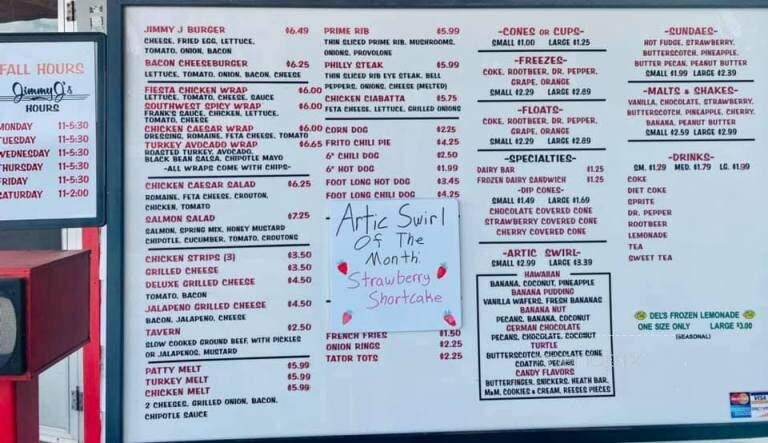 FALL HOURS
Jimmy J's
HOURS
MONDAY 11-5:30
TUESDAY 11-5:30
WEDNESDAY 11-5:30
THURSDAY 11-5:30
FRIDAY 11-5:30
SATURDAY 11-2:00
JIMMY J BURGER $6.49
CHEESE, FRIED EGG, LETTUCE,
TOMATO, ONION, BACON
BACON CHEESEBURGER $6.25
LETTUCE, TOMATO, ONION, BACON, CHEESE
FIESTA CHICKEN WRAP $6.00
LETTUCE, TOMATO, CHEESE, SAUCE
SOUTHWEST SPICY WRAP $6.00
FRANK'S SAUCE, CHICKEN, LETTUCE,
TOMATO, CHEESE
CHICKEN CAESAR WRAP $6.00
DRESSING, ROMAINE, FETA CHEESE, TOMATO
TURKEY AVOCADO WRAP $6.65
ROASTED TURKEY, AVOCADO,
BLACK BEAN SALSA, CHIPOTLE MAYO
-ALL WRAPS COME WITH CHIPS-
CHICKEN CAESAR SALAD $6.25
ROMAINE, FETA CHEESE, CROUTON,
CHICKEN, TOMATO
SALMON SALAD $7.25
SALMON, SPRING MIX, HONEY MUSTARD
CHIPOTLE, CUCUMBER, TOMATO, CROUTONS
CHICKEN STRIPS (3) $3.50
GRILLED CHEESE $3.50
DELUXE GRILLED CHEESE $4.50
TOMATO, BACON
JALAPENO GRILLED CHEESE $4.50
BACON, JALAPENO, CHEESE
TAVERN $2.50
SLOW COOKED GROUND BEEF, WITH PICKLES
OR JALAPENOS, MUSTARD
PATTY MELT $5.99
TURKEY MELT $5.99
CHICKEN MELT $5.99
2 CHEESES, GRILLED ONION, BACON,
CHIPOTLE SAUCE
PRIME RIB $5.99
THIN SLICED PRIME RIB, MUSHROOMS,
ONIONS, PROVOLONE
PHILLY STEAK $5.99
THIN SLICED RIB EYE STEAK, BELL
PEPPERS, ONIONS, CHEESE (MELTED)
CHICKEN CIABATTA $5.75
FETA CHEESE, LETTUCE, GRILLED ONIONS
CORN DOG $2.25
FRITO CHILI PIE $4.25
6" CHILI DOG $2.50
6" HOT DOG $1.99
FOOT LONG HOT DOG $3.45
FOOT LONG CHILI DOG $4.25
Artic Swirl
Of The
Month:
Strawberry
Shortcake
FRENCH FRIES $1.50
ONION RINGS $2.25
TATOR TOTS $2.25
-CONES OR CUPS-
SMALL $1.00 LARGE $1.25
-FREEZES-
COKE, ROOTBEER, DR. PEPPER,
GRAPE, ORANGE
SMALL $2.29 LARGE $2.89
-FLOATS-
COKE, ROOTBEER, DR. PEPPER,
GRAPE, ORANGE
SMALL $2.29 LARGE $2.89
-SPECIALTIES-
DAIRY BAR $1.25
FROZEN DAIRY SANDWICH $1.25
-DIP CONES-
SMALL $1.49 LARGE $1.69
CHOCOLATE COVERED CONE
STRAWBERRY COVERED CONE
CHERRY COVERED CONE
-ARTIC SWIRL-
SMALL $2.99 LARGE $3.39
HAWAIIAN
BANANA, COCONUT, PINEAPPLE
BANANA PUDDING
VANILLA WAFERS, FRESH BANANAS
BANANA NUT
PECANS, BANANA, COCONUT
GERMAN CHOCOLATE
PECANS, CHOCOLATE, COCONUT
TURTLE
BUTTERSCOTCH, CHOCOLATE CONE
COATING, PECANS
CANDY FLAVORS
BUTTERFINGER, SNICKERS, HEATH BAR,
M&M, COOKIES & CREAM, REESES PIECES
-SUNDAES-
HOT FUDGE, STRAWBERRY,
BUTTERSCOTCH, PINEAPPLE,
BUTTER PECAN, PEANUT BUTTER
SMALL $1.99 LARGE $2.39
-MALTS & SHAKES-
VANILLA, CHOCOLATE, STRAWBERRY,
BUTTERSCOTCH, PINEAPPLE, CHERRY,
BANANA, PEANUT BUTTER
SMALL $2.59 LARGE $2.99
-DRINKS-
SM. $1.29 MED. $1.79 LG. $1.99
COKE
DIET COKE
SPRITE
DR. PEPPER
ROOTBEER
LEMONADE
TEA
SWEET TEA
DEL'S FROZEN LEMONADE
ONE SIZE ONLY LARGE $3.00
(SEASONAL)
VISA